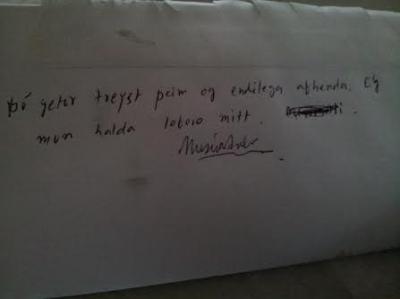 Þú getir treyst peim og endilega afhenda. Eg
mun halda loforo mitt.